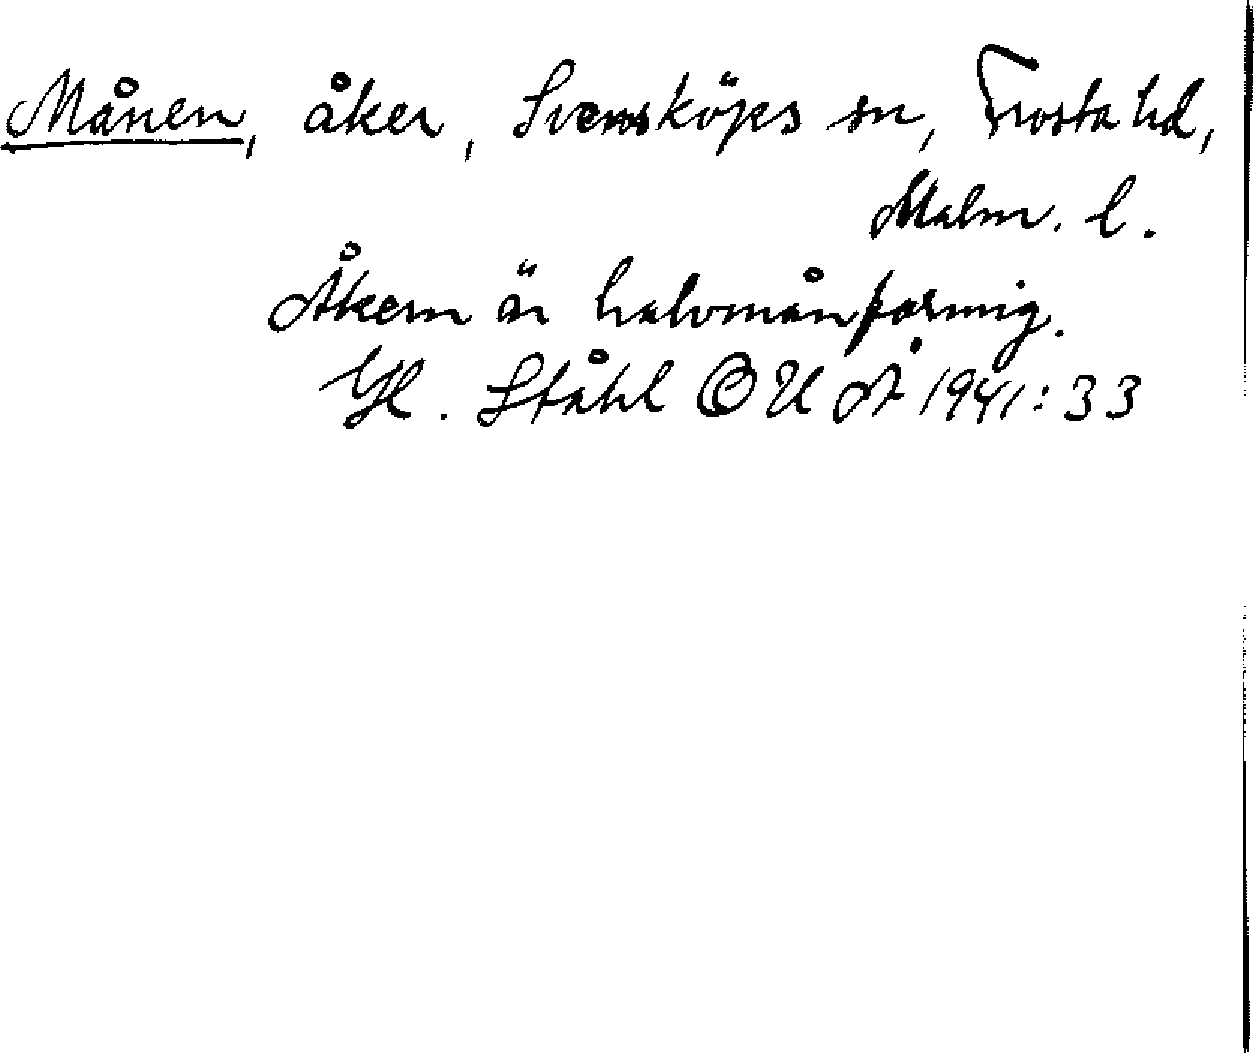 Månen, åker, Svensköps sn, Frosta hd,
Malm. l.
Åkern är halvmånformig.
H. Ståhl OUÅ 1941:33